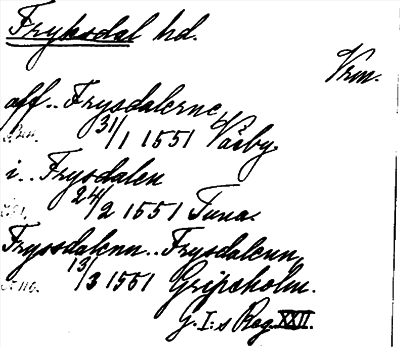 Fryksdal hd.
Vrm.
aff.. Frysdalerne
31/1 1551 Väsby
i.. Frysdalen
24/2 1551 Tuna.
Fryssdalenn.. Frysdalenn,
13/3 1551 Gripsholm.
G. I:s Reg. XXII.